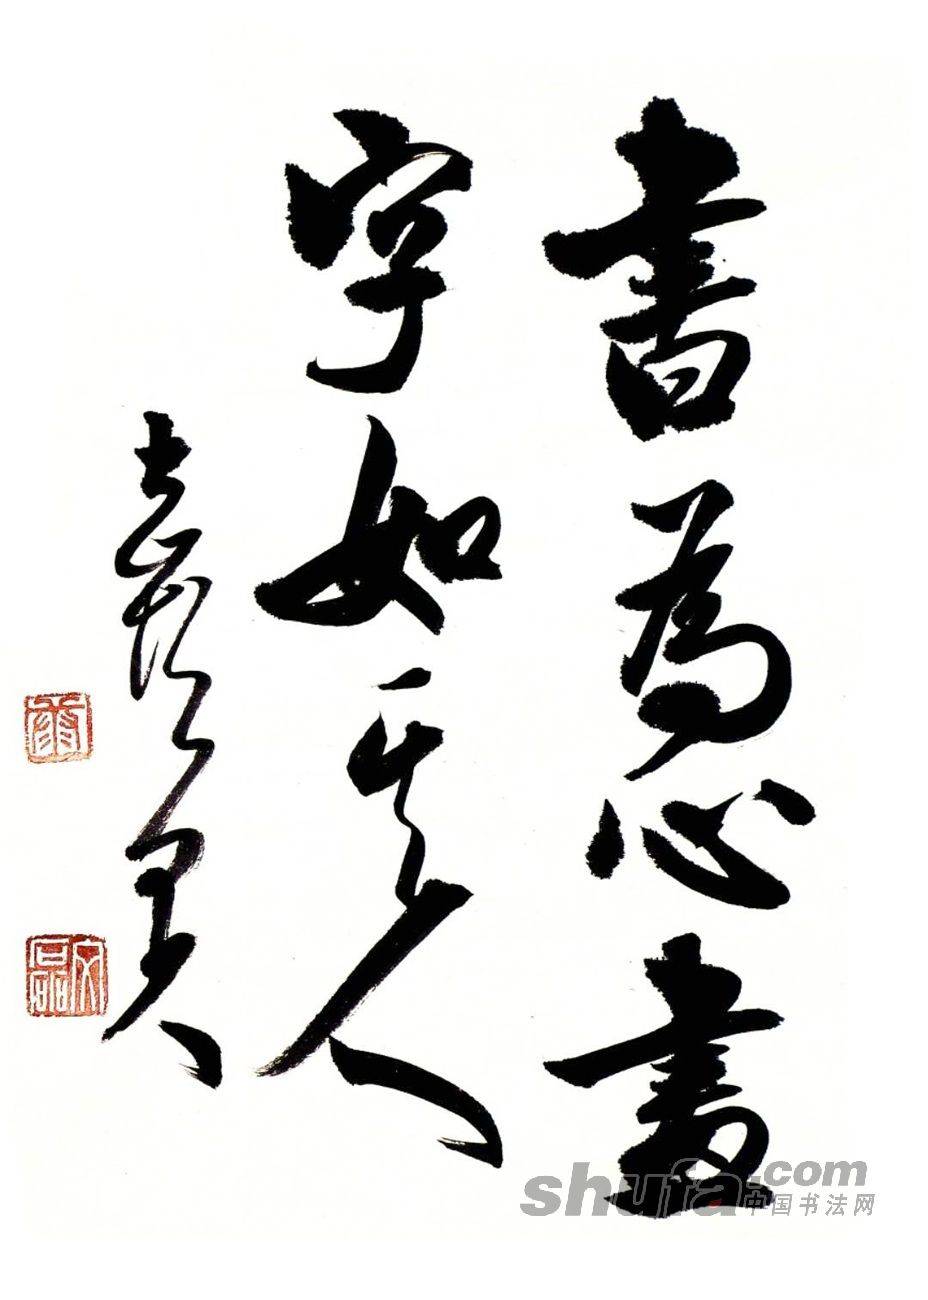 書為心畫
字如其人
shufa.com
中国书法网